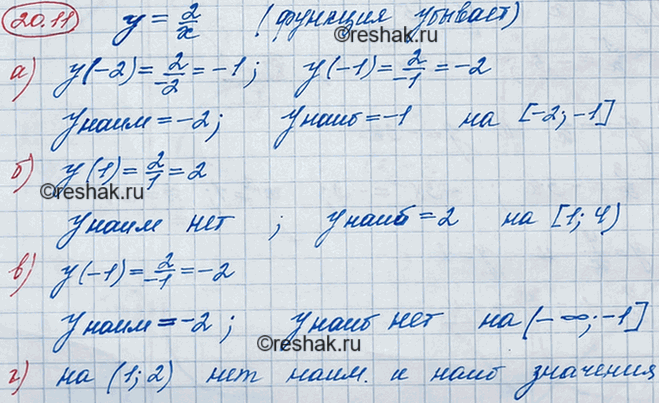 20.11 y = 2/x (функция убывает)
©reshak.ru
а) y(-2) = 2/-2 = -1; y(-1) = 2/-1 = -2
yнаим = -2; yнаиб = -1 на [-2; -1]
б) y(1) = 2/1 = 2
©reshak.ru
yнаим нет ; yнаиб = 2 на [1; 4)
в) y(-1) = 2/-1 = -2
yнаим = -2; yнаиб нет на (-∞; -1]
©reshak.ru
г) на (1; 2) нет наим. и наиб значения